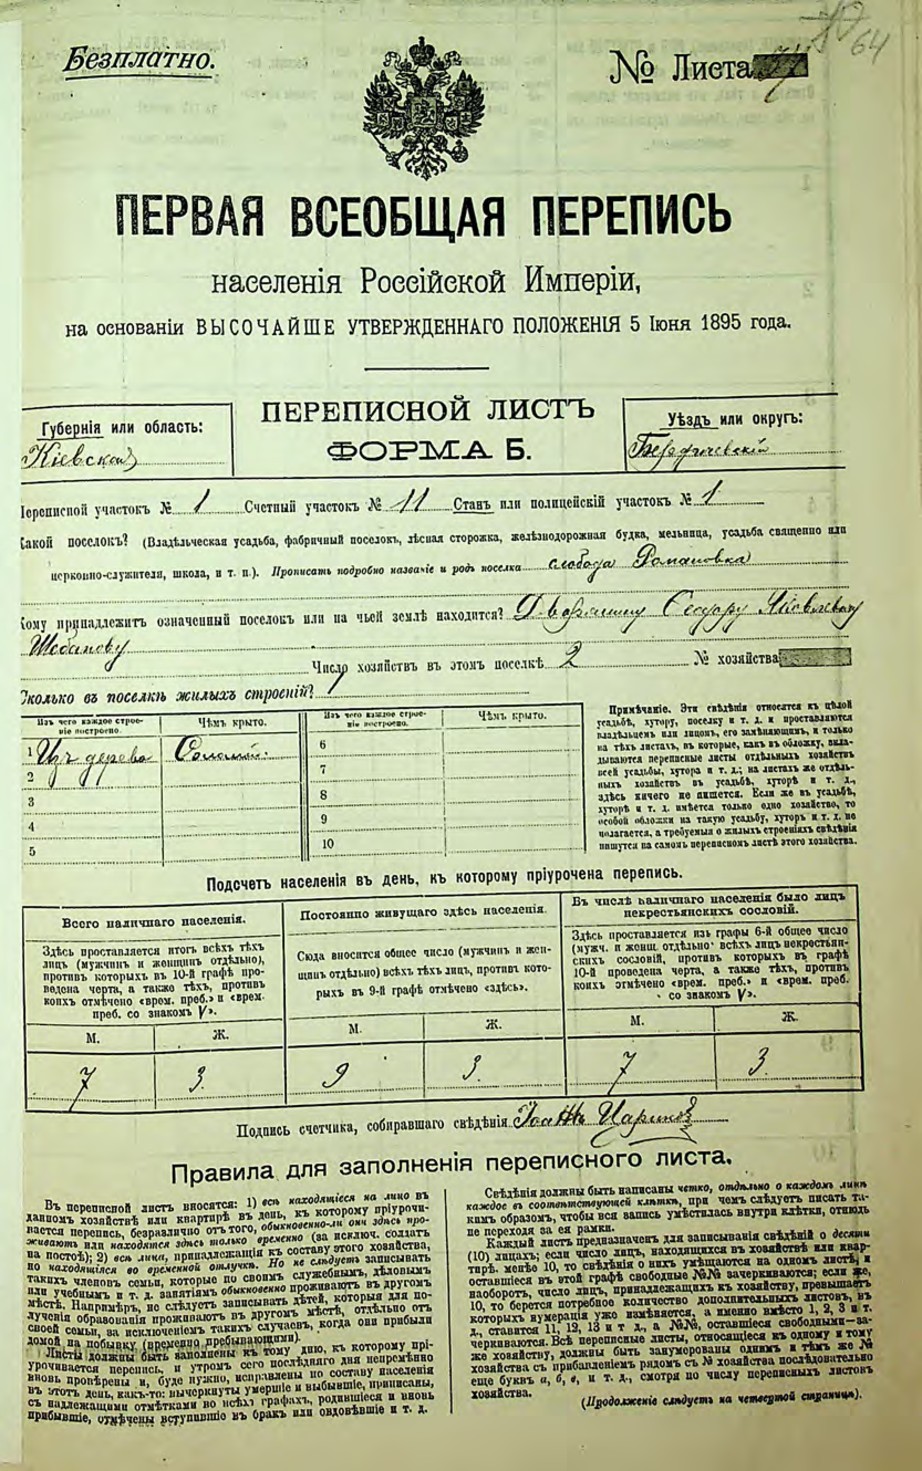 64
Безплатно.
№ Листа
ПЕРВАЯ ВСЕОБЩАЯ ПЕРЕПИСЬ
населенія Россійской Имперіи,
на основаніи ВЫСОЧАЙШЕ УТВЕРЖДЕННАГО ПОЛОЖЕНІЯ 5 Іюня 1895 года.
ПЕРЕПИСНОЙ ЛИСТЪ
ФОРМА Б.
Губернія или область:
Кіевская
Уѣздъ или округъ:
Бердичевскій
Переписной участокъ № 1 Счетный участокъ № 11 Станъ или полицейскій участокъ № 1
Какой поселокъ? (Владѣльческая усадьба, фабричный поселокъ, лѣсная сторожка, желѣзнодорожная будка, мельница, усадьба священно или
церковно-служителя, школа, и т. п.). Прописать подробно названіе и родъ поселка слобода Романовка
Кому принадлежитъ означенный поселокъ или на чьей землѣ находится? Дворянину Ѳедору Яковлевичу
Число хозяйствъ въ этомъ поселкѣ 2 № хозяйства
Сколько въ поселкѣ жилыхъ строеній? 1
Изъ чего каждое строе-
ніе построено.
Чѣмъ крыто.
Изъ чего каждое строе-
ніе построено.
Чѣмъ крыто.
1 Изъ дерева Соломой.
2
3
4
5
6
7
8
9
10
Примѣчаніе. Эти свѣдѣнія относятся къ цѣлой
усадьбѣ, хутору, поселку и т. д. и проставляются
владѣльцемъ или лицомъ, его замѣняющимъ, и только
на тѣхъ листахъ, въ которые, какъ въ обложку, вкла-
дываются переписные листы отдѣльныхъ хозяйствъ
всей усадьбы, хутора и т. д.; на листахъ же отдѣль-
ныхъ хозяйствъ въ усадьбѣ, хуторѣ и т. д.,
здѣсь ничего не пишется. Если же въ усадьбѣ,
хуторѣ и т. д. имѣется только одно хозяйство, то
особой обложки на такую усадьбу, хуторъ и т. д. не
полагается, а требуемыя о жилыхъ строеніяхъ свѣдѣнія
пишутся на самомъ переписномъ листѣ этого хозяйства.
Подсчетъ населенія въ день, къ которому пріурочена перепись.
Всего наличнаго населенія.
Здѣсь проставляется итогъ всѣхъ тѣхъ
лицъ (мужчинъ и женщинъ отдѣльно),
противъ которыхъ въ 10-й графѣ про-
ведена черта, а также тѣхъ, противъ
коихъ отмѣчено «врем. преб.» и «врем.
преб. со знакомъ V».
М. Ж.
7 3.
Постоянно живущаго здѣсь населенія.
Сюда вносится общее число (мужчинъ и жен-
щинъ отдѣльно) всѣхъ тѣхъ лицъ, противъ кото-
рыхъ въ 9-й графѣ отмѣчено «здѣсь».
М. Ж.
9 3.
Въ числѣ наличнаго населенія было лицъ
некрестьянскихъ сословій.
Здѣсь проставляется изъ графы 6-й общее число
(мужч. и женщ. отдѣльно) всѣхъ лицъ некрестьян-
скихъ сословій, противъ которыхъ въ графѣ
10-й проведена черта, а также тѣхъ, противъ
коихъ отмѣчено «врем. преб.» и «врем. преб.
со знакомъ V».
М. Ж.
7 3.
Подпись счетчика, собиравшаго свѣдѣнія
Правила для заполненія переписного листа.
Въ переписной листъ вносятся: 1) всѣ находящіеся на лицо въ
данномъ хозяйствѣ или квартирѣ въ день, къ которому пріурочи-
вается перепись, безразлично отъ того, обыкновенно-ли они здѣсь про-
живаютъ или находятся здѣсь только временно (за исключ. солдатъ
на постоѣ); 2) всѣ лица, принадлежащія къ составу этого хозяйства,
но находящіяся во временной отлучкѣ. Но не слѣдуетъ записывать
такихъ членовъ семьи, которые по своимъ служебнымъ, дѣловымъ
или учебнымъ и т. д. занятіямъ обыкновенно проживаютъ въ другомъ
мѣстѣ. Напримѣръ, не слѣдуетъ записывать дѣтей, которыя для по-
лученія образованія проживаютъ въ другомъ мѣстѣ, отдѣльно отъ
своей семьи, за исключеніемъ такихъ случаевъ, когда они прибыли
домой на побывку (временно пребывающими).
Листы должны быть заполнены къ тому дню, къ которому прі-
урочивается перепись, и утромъ сего послѣдняго дня непремѣнно
вновь провѣрены и, буде нужно, исправлены по составу населенія
въ этотъ день, какъ-то: вычеркнуты умершіе и выбывшіе, приписаны,
съ надлежащими отмѣтками во всѣхъ графахъ, родившіеся и вновь
прибывшіе, отмѣчены вступившіе въ бракъ или овдовѣвшіе и т. д.
Свѣдѣнія должны быть написаны четко, отдѣльно о каждомъ лицѣ
каждое въ соотвѣтствующей клѣткѣ, при чемъ слѣдуетъ писать та-
кимъ образомъ, чтобы вся запись умѣстилась внутри клѣтки, отнюдь
не переходя за ея рамки.
Каждый листъ предназначенъ для записыванія свѣдѣній о десяти
(10) лицахъ; если число лицъ, находящихся въ хозяйствѣ или квар-
тирѣ, менѣе 10, то свѣдѣнія о нихъ умѣщаются на одномъ листѣ, и
оставшіеся въ этой графѣ свободные №№ зачеркиваются; если же,
наоборотъ, число лицъ, принадлежащихъ къ хозяйству, превышаетъ
10, то берется потребное количество дополнительныхъ листовъ, въ
которыхъ нумерація уже измѣняется, а именно вмѣсто 1, 2, 3 и т.
д., ставится 11, 12, 13 и т д., а №№, оставшіеся свободными—за-
черкиваются. Всѣ переписные листы, относящіеся къ одному и тому
же хозяйству, должны быть занумерованы однимъ и тѣмъ же №
хозяйства съ прибавленіемъ рядомъ съ № хозяйства послѣдовательно
еще буквъ а, б, в, и т. д., смотря по числу переписныхъ листовъ
хозяйства.
(Продолженіе слѣдуетъ на четвертой страницѣ).